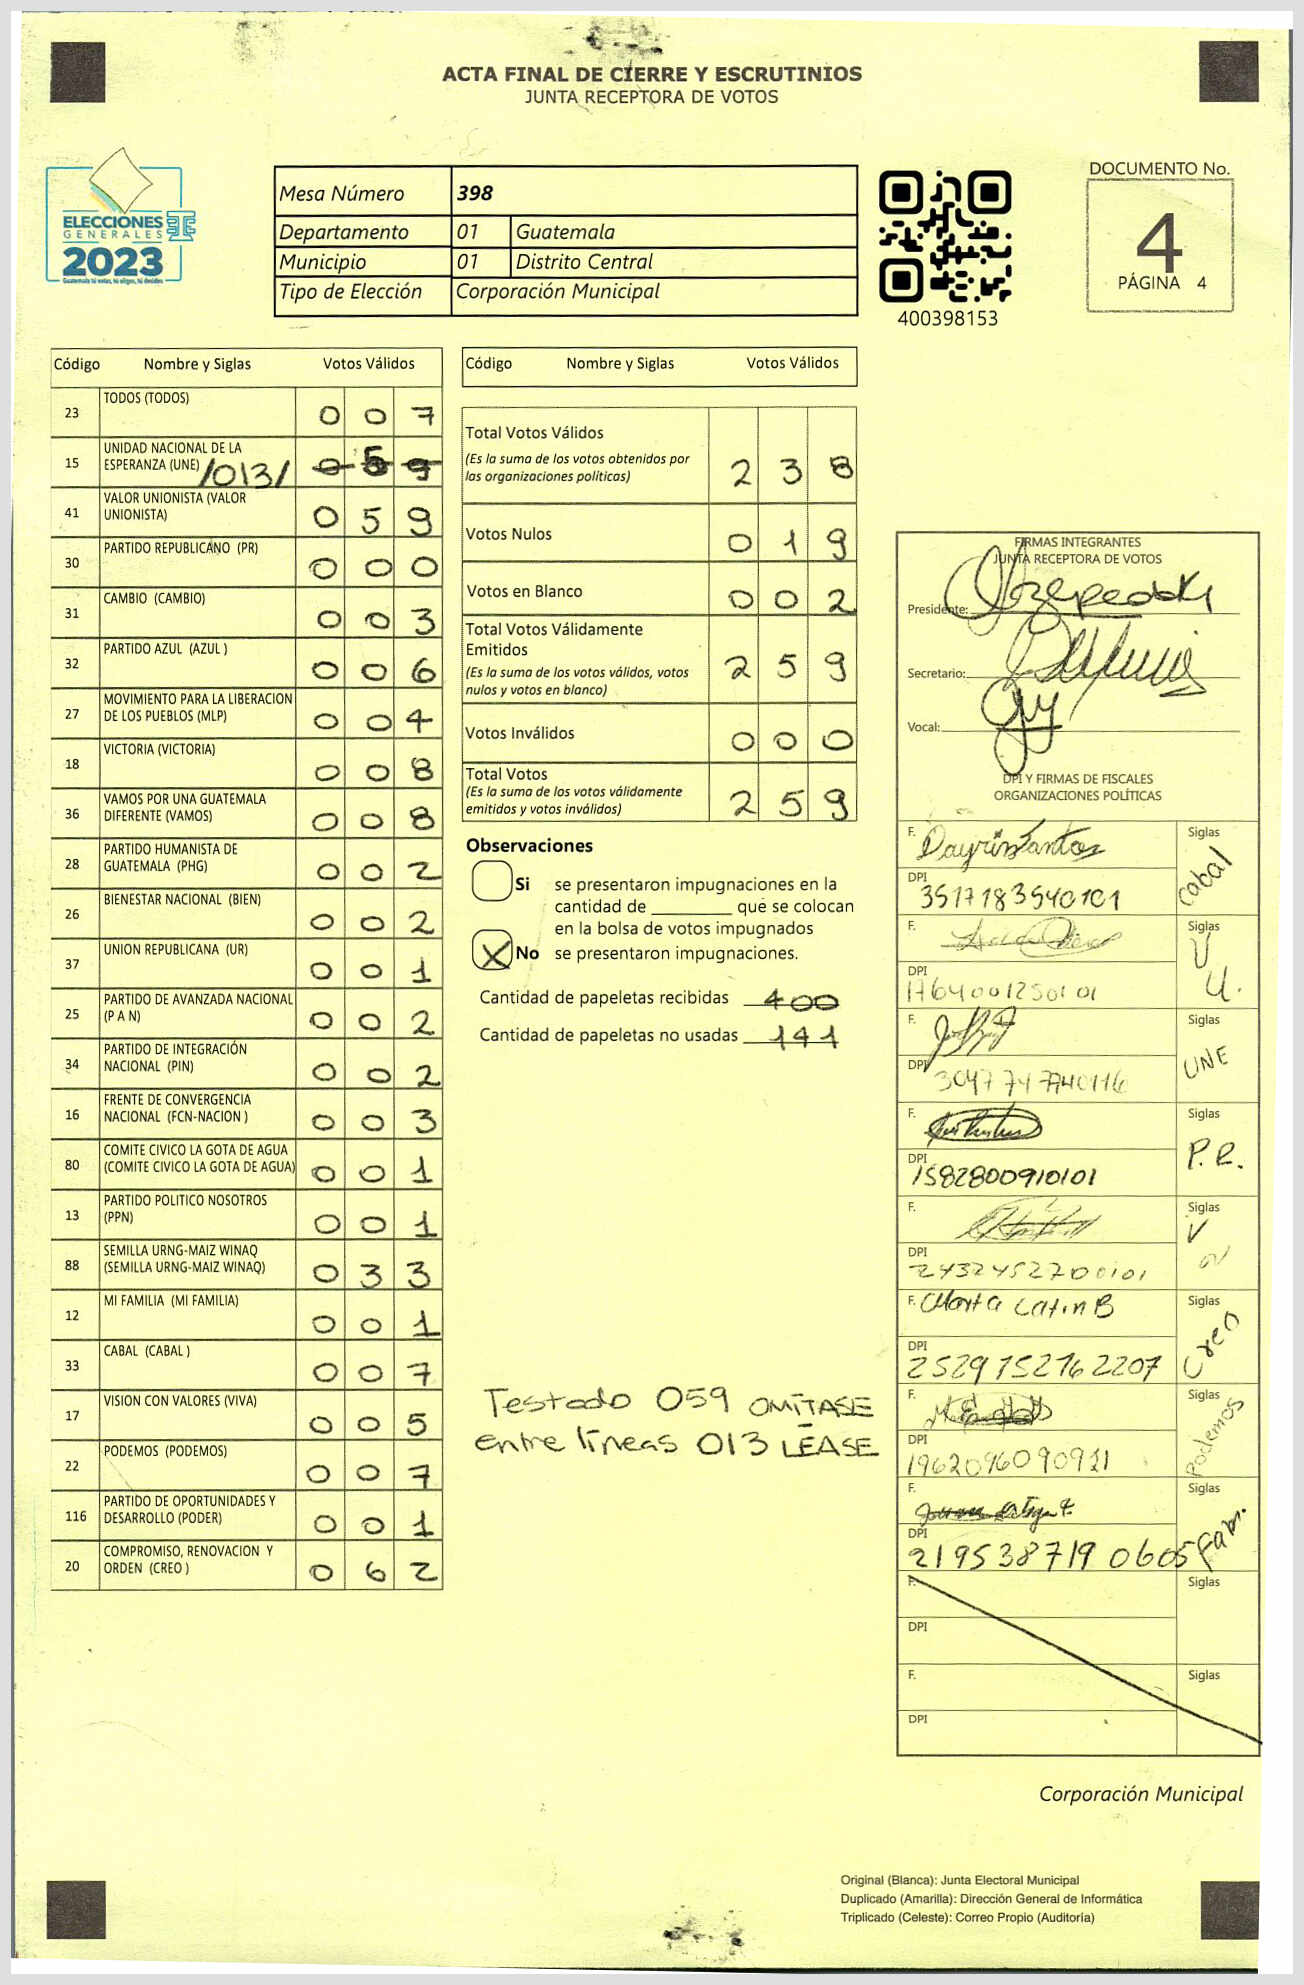 ACTA FINAL DE CIERRE Y ESCRUTINIOS
JUNTA RECEPTORA DE VOTOS
ELECCIONES
GENERALES
2023
Guatemala tú votas, tú eliges, tú decides
Mesa Número 398
Departamento 01 Guatemala
Municipio 01 Distrito Central
Tipo de Elección Corporación Municipal
400398153
DOCUMENTO No.
4
PÁGINA 4
Código Nombre y Siglas Votos Válidos
23 TODOS (TODOS) 0 0 7
15 UNIDAD NACIONAL DE LA
ESPERANZA (UNE) /013/ 0 5 9
41 VALOR UNIONISTA (VALOR
UNIONISTA) 0 5 9
30 PARTIDO REPUBLICANO (PR) 0 0 0
31 CAMBIO (CAMBIO) 0 0 3
32 PARTIDO AZUL (AZUL ) 0 0 6
27 MOVIMIENTO PARA LA LIBERACION
DE LOS PUEBLOS (MLP) 0 0 4
18 VICTORIA (VICTORIA) 0 0 8
36 VAMOS POR UNA GUATEMALA
DIFERENTE (VAMOS) 0 0 8
28 PARTIDO HUMANISTA DE
GUATEMALA (PHG) 0 0 2
26 BIENESTAR NACIONAL (BIEN) 0 0 2
37 UNION REPUBLICANA (UR) 0 0 1
25 PARTIDO DE AVANZADA NACIONAL
(P A N) 0 0 2
34 PARTIDO DE INTEGRACIÓN
NACIONAL (PIN) 0 0 2
16 FRENTE DE CONVERGENCIA
NACIONAL (FCN-NACION ) 0 0 3
80 COMITE CIVICO LA GOTA DE AGUA
(COMITE CIVICO LA GOTA DE AGUA) 0 0 1
13 PARTIDO POLITICO NOSOTROS
(PPN) 0 0 1
88 SEMILLA URNG-MAIZ WINAQ
(SEMILLA URNG-MAIZ WINAQ) 0 3 3
12 MI FAMILIA (MI FAMILIA) 0 0 1
33 CABAL (CABAL ) 0 0 7
17 VISION CON VALORES (VIVA) 0 0 5
22 PODEMOS (PODEMOS) 0 0 7
116 PARTIDO DE OPORTUNIDADES Y
DESARROLLO (PODER) 0 0 1
20 COMPROMISO, RENOVACION Y
ORDEN (CREO ) 0 6 2
Código Nombre y Siglas Votos Válidos
Total Votos Válidos
(Es la suma de los votos obtenidos por
las organizaciones políticas) 2 3 8
Votos Nulos 0 1 9
Votos en Blanco 0 0 2
Total Votos Válidamente
Emitidos
(Es la suma de los votos válidos, votos
nulos y votos en blanco) 2 5 9
Votos Inválidos 0 0 0
Total Votos
(Es la suma de los votos válidamente
emitidos y votos inválidos) 2 5 9
Observaciones
Si se presentaron impugnaciones en la
cantidad de ________ que se colocan
en la bolsa de votos impugnados
X No se presentaron impugnaciones.
Cantidad de papeletas recibidas 400
Cantidad de papeletas no usadas 141
Testado 059 OMÍTASE
entre líneas 013 LÉASE
FIRMAS INTEGRANTES
JUNTA RECEPTORA DE VOTOS
Presidente:
Secretario:
Vocal:
DPI Y FIRMAS DE FISCALES
ORGANIZACIONES POLÍTICAS
F. Dayrin Santos Siglas
DPI Cabal
3517183540101
F. Siglas
DPI V U.
1764001250101
F. Siglas
DPI UNE
F. Siglas
DPI P.R.
1582800910101
F. Siglas
DPI V
2432452700101
F. Marta Catin B Siglas
DPI Creo
2529152162207
F. Siglas
DPI Podemos
F. Siglas
DPI Fam.
2195387190605
F. Siglas
DPI
F. Siglas
DPI
Corporación Municipal
Original (Blanca): Junta Electoral Municipal
Duplicado (Amarilla): Dirección General de Informática
Triplicado (Celeste): Correo Propio (Auditoría)